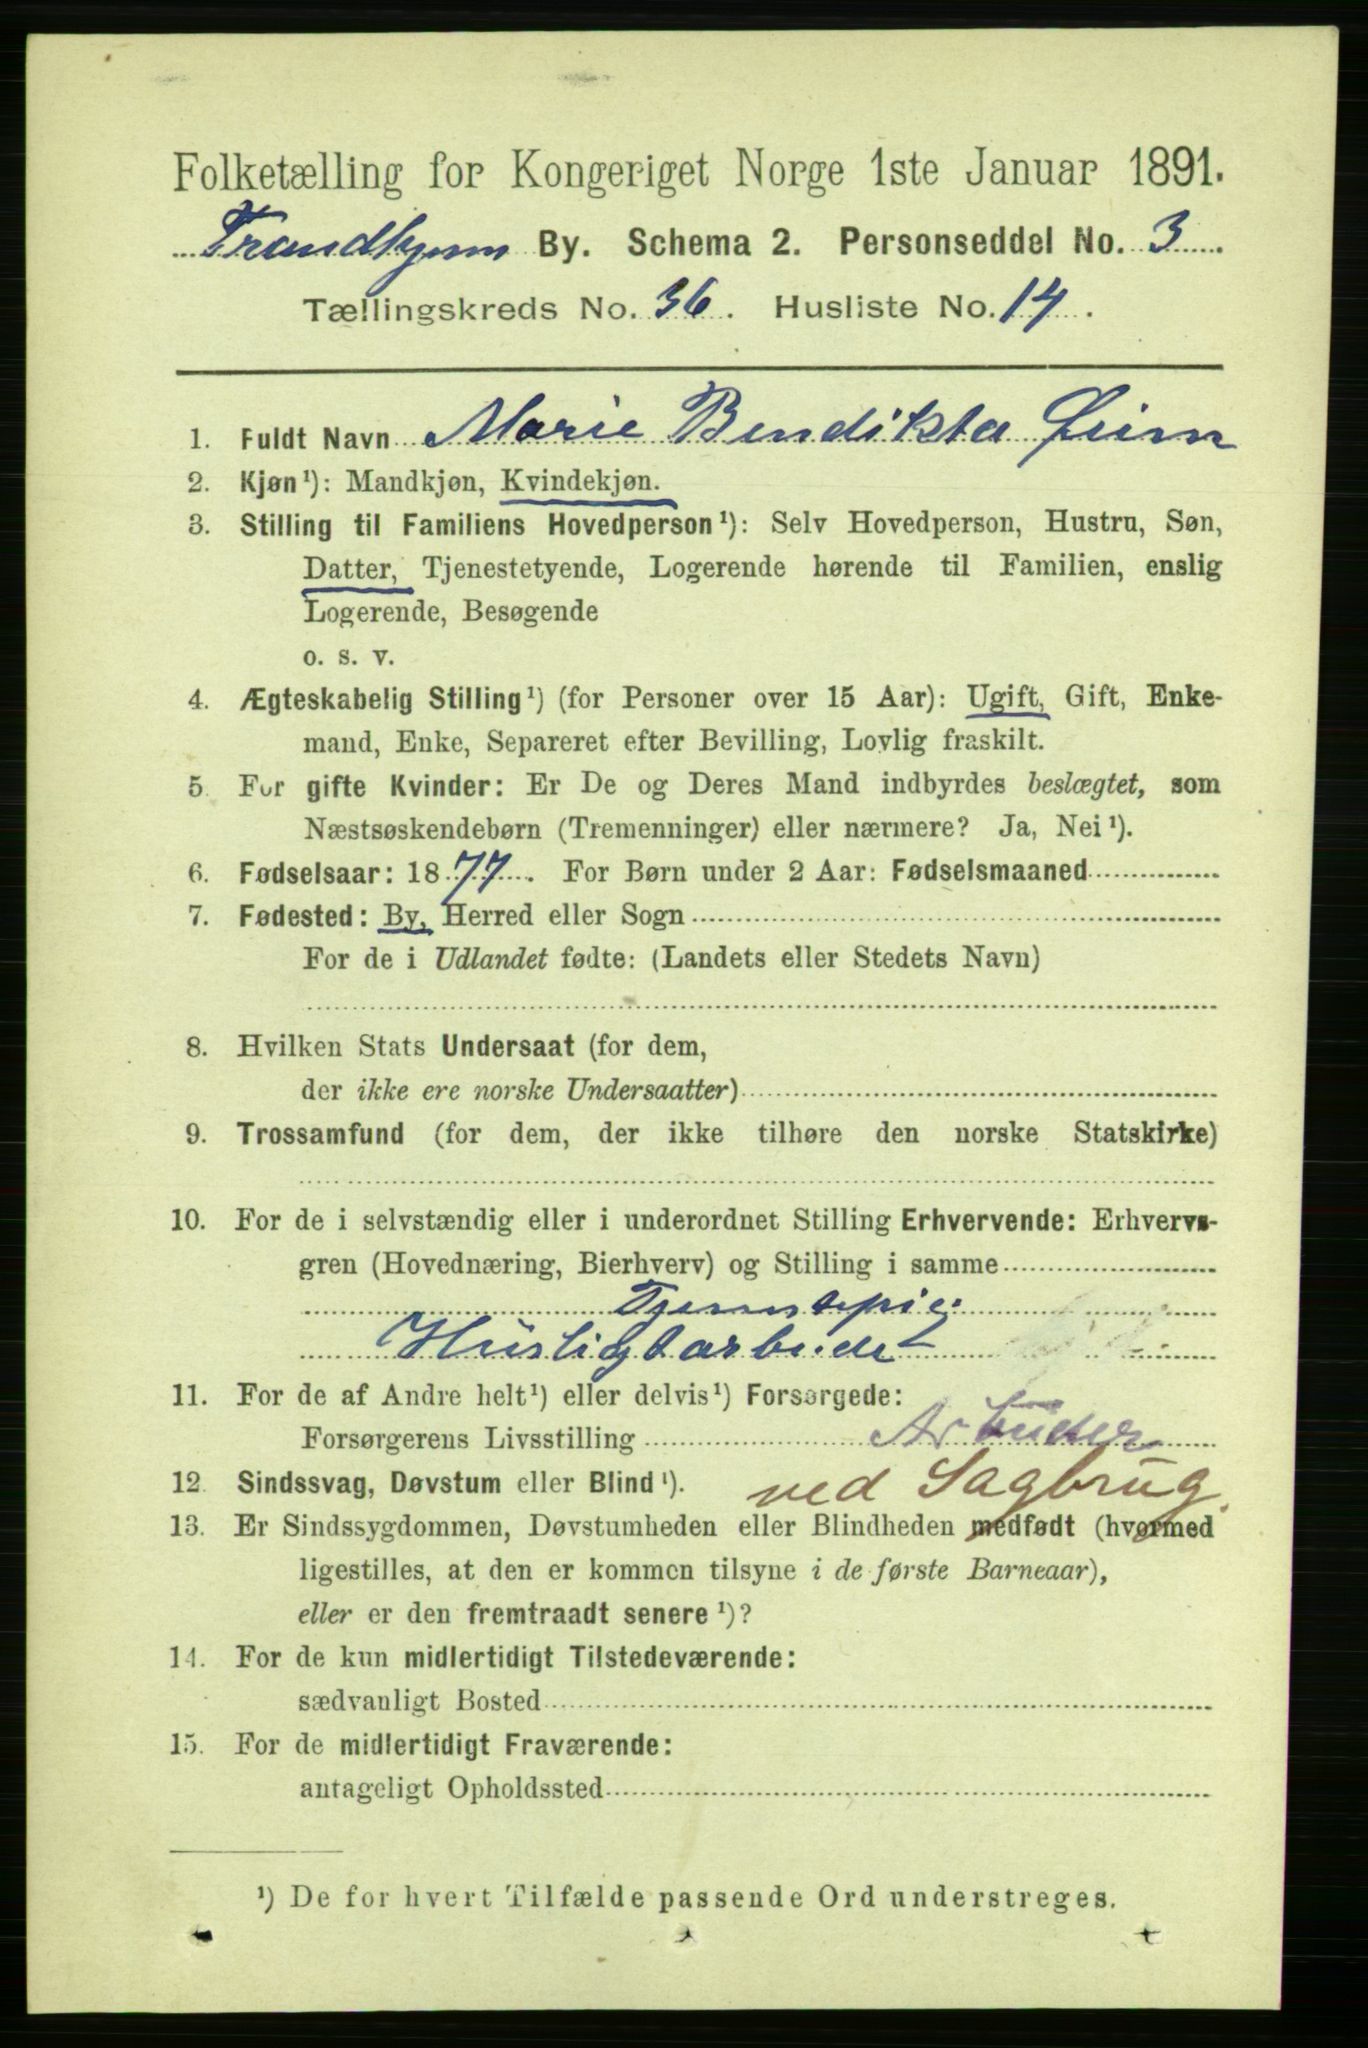 Folketælling for Kongeriget Norge 1ste Januar 1891.
Trondhjem By. Schema 2. Personseddel No. 3.
Tællingskreds No. 36. Husliste No. 14.
1. Fuldt Navn Marie Bendikta
2. Kjøn¹): Mandkjøn, Kvindekjøn.
3. Stilling til Familiens Hovedperson¹): Selv Hovedperson, Hustru, Søn,
Datter, Tjenestetyende, Logerende hørende til Familien, enslig
Logerende, Besøgende
o. s. v.
4. Ægteskabelig Stilling¹) (for Personer over 15 Aar): Ugift, Gift, Enke-
mand, Enke, Separeret efter Bevilling, Lovlig fraskilt.
5. For gifte Kvinder: Er De og Deres Mand indbyrdes beslægtet, som
Næstsøskendebørn (Tremenninger) eller nærmere? Ja, Nei¹).
6. Fødselsaar: 1877. For Børn under 2 Aar: Fødselsmaaned
7. Fødested: By, Herred eller Sogn
For de i Udlandet fødte: (Landets eller Stedets Navn)
8. Hvilken Stats Undersaat (for dem,
der ikke ere norske Undersaatter)
9. Trossamfund (for dem, der ikke tilhøre den norske Statskirke)
10. For de i selvstændig eller i underordnet Stilling Erhvervende: Erhvervs-
gren (Hovednæring, Bierhverv) og Stilling i samme
Tjenstepie.
Husligtarbeide
11. For de af Andre helt¹) eller delvis¹) Forsørgede:
Forsørgerens Livsstilling Arbeider
12. Sindssvag, Døvstum eller Blind¹). ved Sagbrug.
13. Er Sindssygdommen, Døvstumheden eller Blindheden medfødt (hvormed
ligestilles, at den er kommen tilsyne i de første Barneaar),
eller er den fremtraadt senere¹)?
14. For de kun midlertidigt Tilstedeværende:
sædvanligt Bosted
15. For de midlertidigt Fraværende:
antageligt Opholdssted
¹) De for hvert Tilfælde passende Ord understreges.